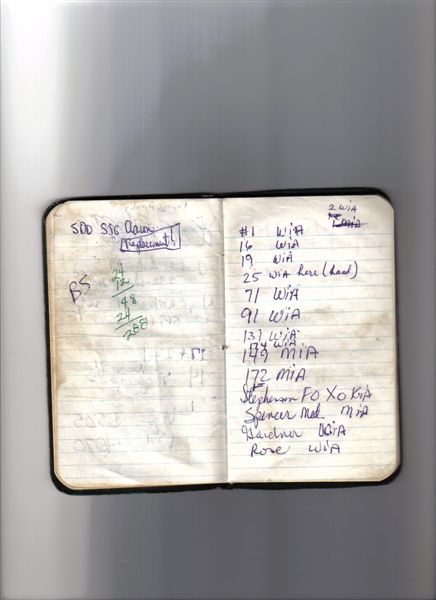 SDD SSG Aaron
Replacements
BS
24
12
48
24
288
2 WiA
#1 WiA
16 WiA
19 WiA
25 WiA here (hand)
71 WiA
91 WiA
137 WiA
134 WiA
149 MiA
172 MiA
Stephenson FO XO KiA
Spencer Med. MiA
Gardner KiA
Rose WiA